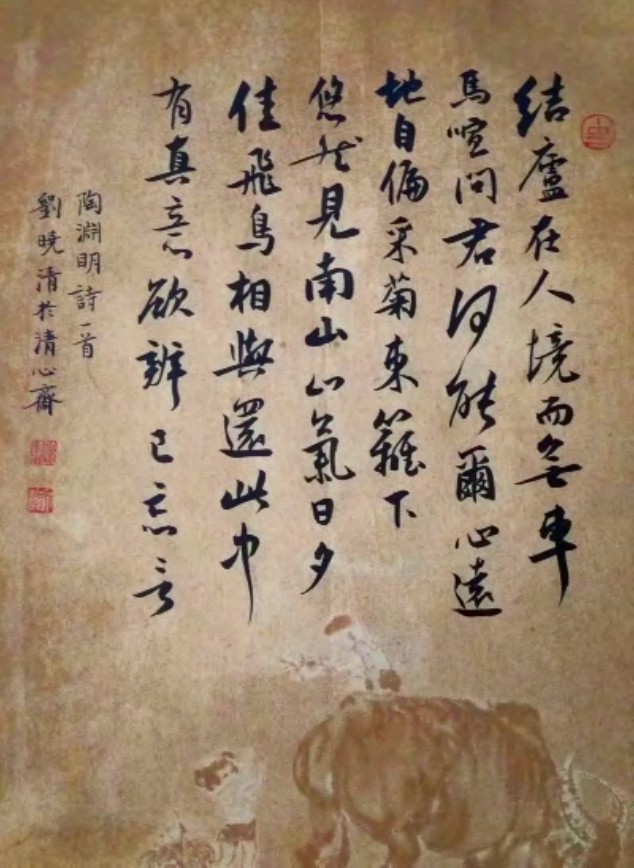 結廬在人境而無車
馬喧問君何能爾心遠
地自偏采菊東籬下
悠然見南山山氣日夕
佳飛鳥相與還此中
有真意欲辨已忘言
陶淵明詩一首
劉曉清於清心齋